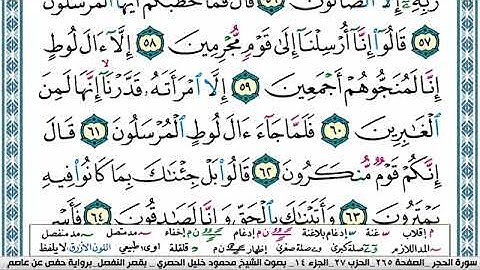 رَبِّهِۦٓ إِلَّا ٱلضَّآلُّونَ ٥٦ قَالَ فَمَا خَطْبُكُمْ أَيُّهَا ٱلْمُرْسَلُونَ
٥٧ قَالُوٓا۟ إِنَّآ أُرْسِلْنَآ إِلَىٰ قَوْمٍ مُّجْرِمِينَ ٥٨ إِلَّآ ءَالَ لُوطٍ
إِنَّا لَمُنَجُّوهُمْ أَجْمَعِينَ ٥٩ إِلَّا ٱمْرَأَتَهُۥ قَدَّرْنَآ إِنَّهَا لَمِنَ
ٱلْغَٰبِرِينَ ٦٠ فَلَمَّا جَآءَ ءَالَ لُوطٍ ٱلْمُرْسَلُونَ ٦١ قَالَ
إِنَّكُمْ قَوْمٌ مُّنكَرُونَ ٦٢ قَالُوا۟ بَلْ جِئْنَٰكَ بِمَا كَانُوا۟ فِيهِ
يَمْتَرُونَ ٦٣ وَأَتَيْنَٰكَ بِٱلْحَقِّ وَإِنَّا لَصَٰدِقُونَ ٦٤ فَأَسْرِ
م إقلاب غنة إدغام بلاغنة ن م إدغام إخفاء مد متصل مد منفصل
المد اللازم صلة كبرى صلة صغرى إظهار ن م قلقلة اوى طبيعي اللون الأزرق لا يلفظ
سورة الحجر _الصفحة ٢٦٥ _الحزب ٢٧_ الجزء ١٤_ بصوت الشيخ محمود خليل الحصري _ بقصر التفصل_برواية حفص عن عاصم